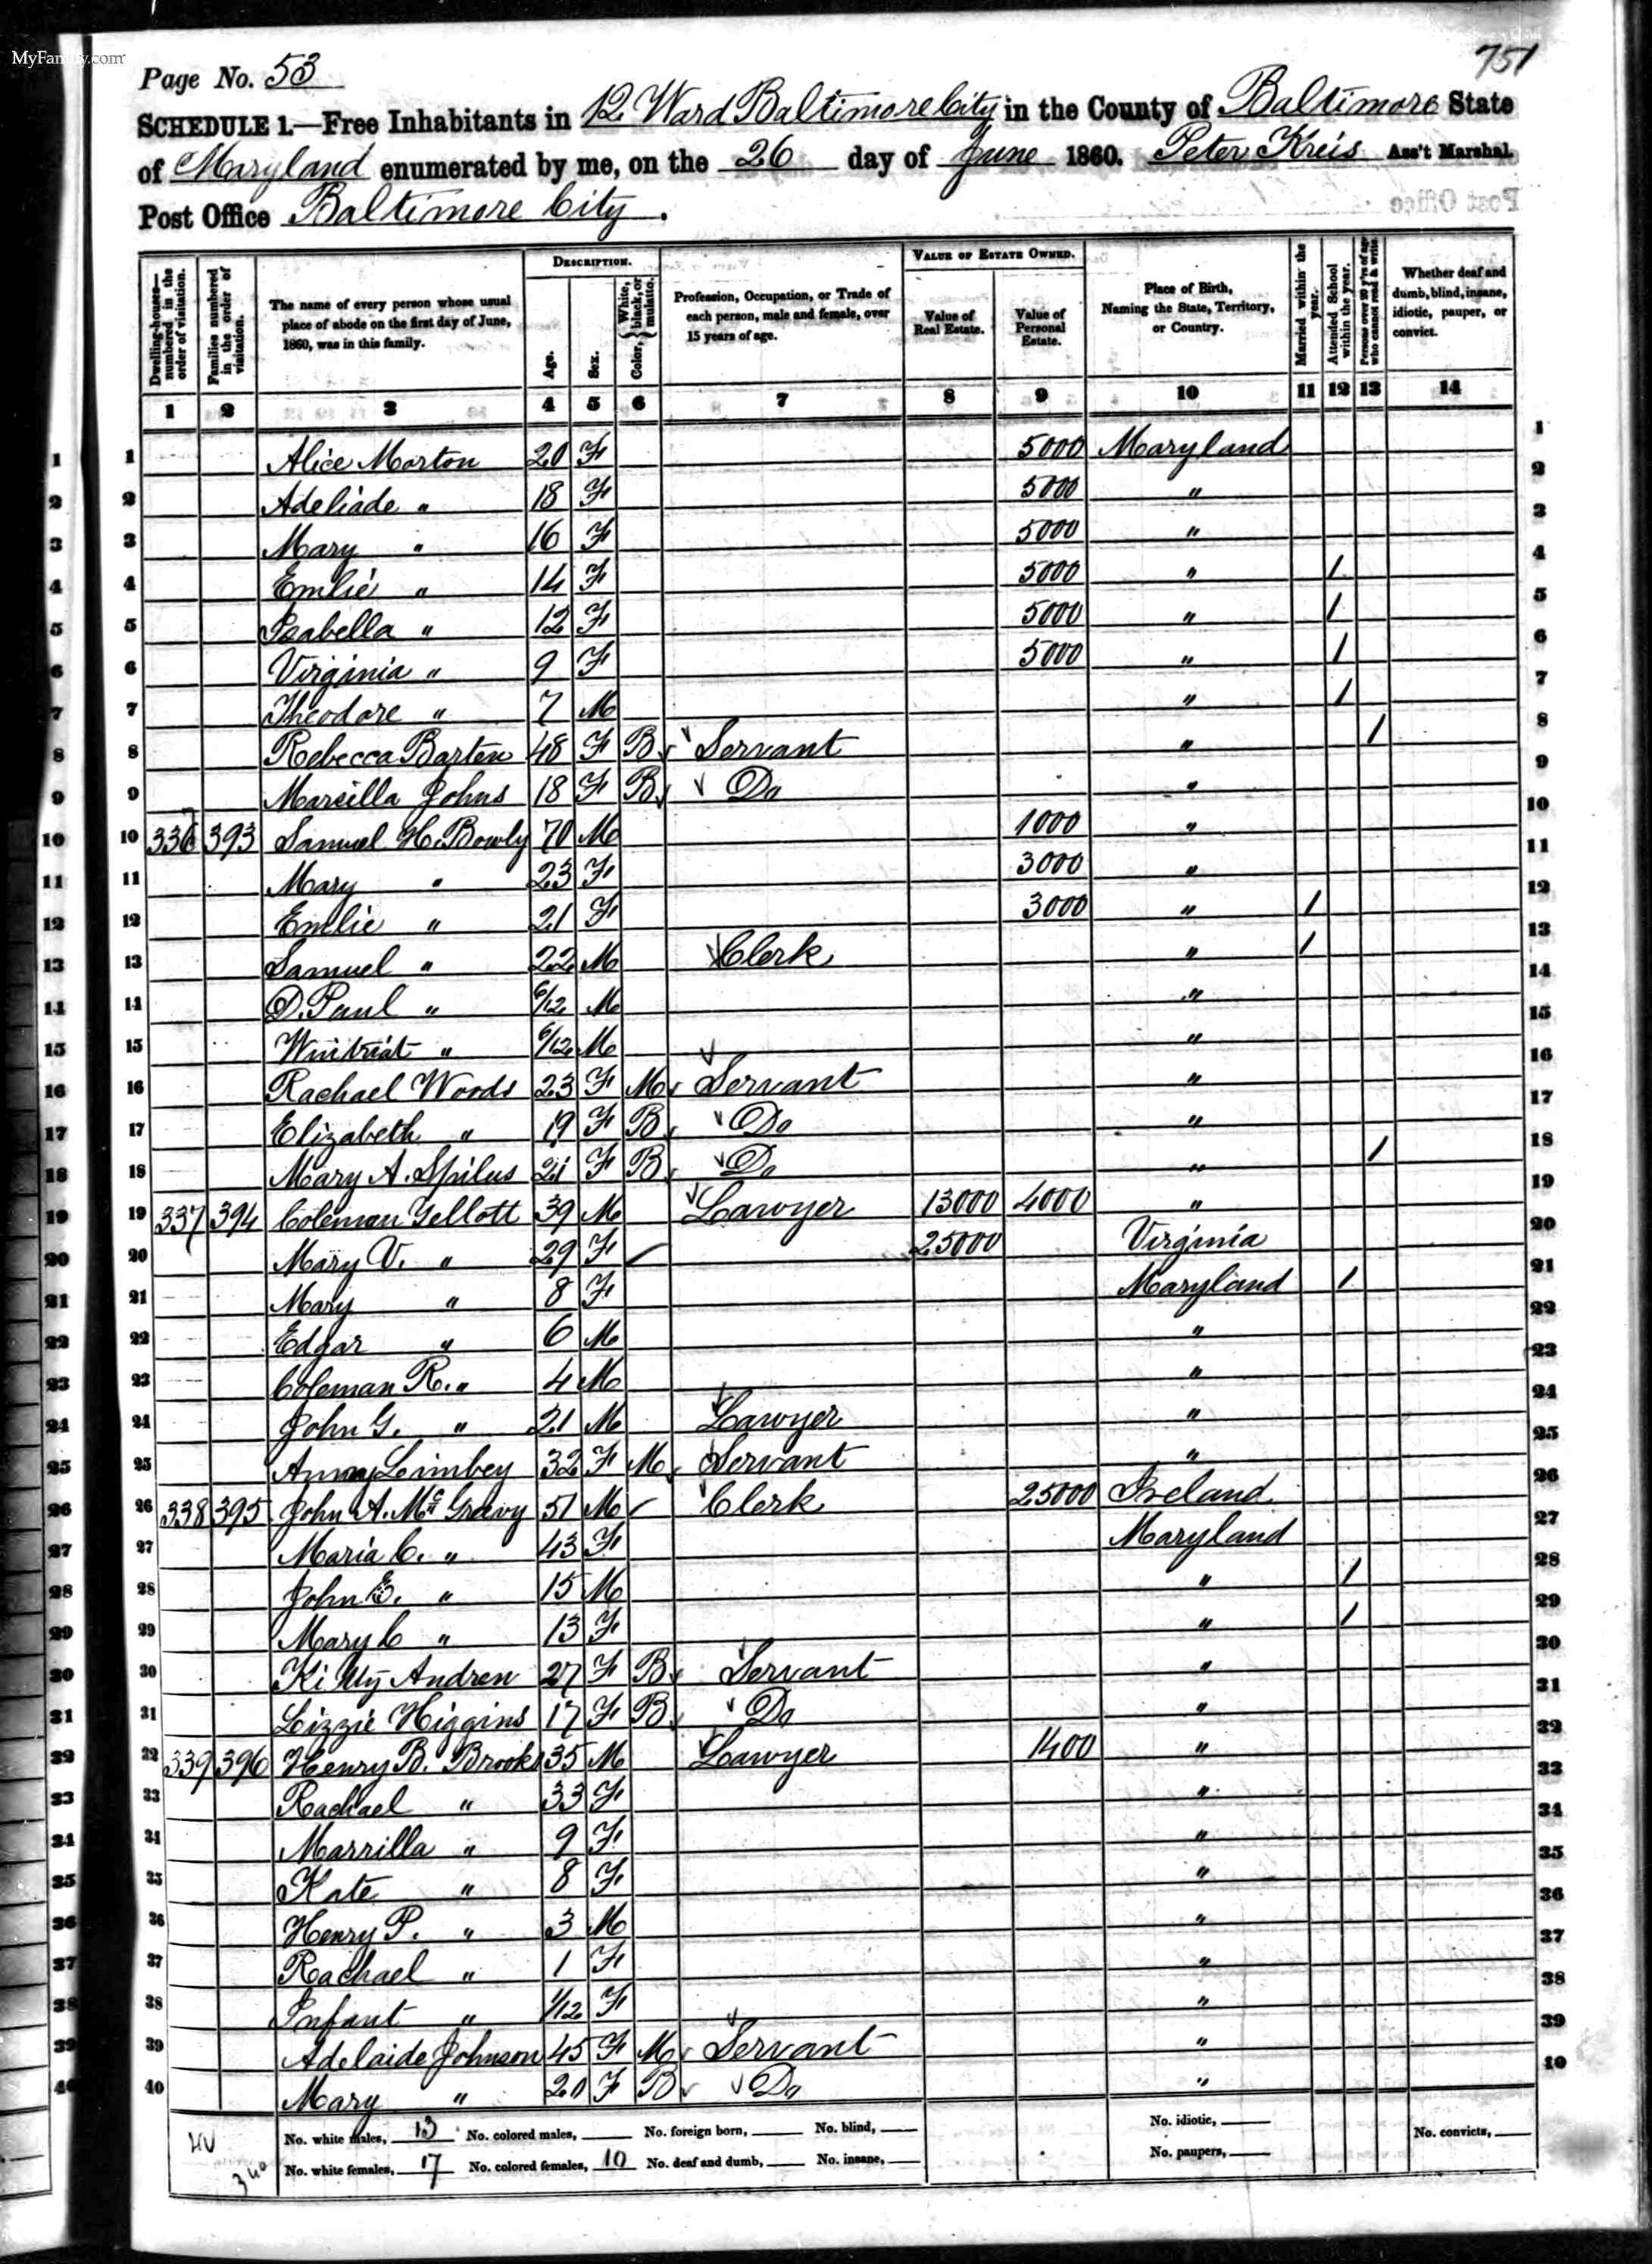 MyFamily.com
751
Page No. 53
SCHEDULE 1.—Free Inhabitants in 12 Ward Baltimore City in the County of Baltimore State
of Maryland enumerated by me, on the 26 day of June 1860. Peter Kreis Ass't Marshal.
Post Office Baltimore City.
DESCRIPTION. VALUE OF ESTATE OWNED.
Dwelling-houses—numbered in the order of visitation.
Families numbered in the order of visitation.
The name of every person whose usual place of abode on the first day of June, 1860, was in this family.
Age.
Sex.
Color, { White, black, or mulatto.
Profession, Occupation, or Trade of each person, male and female, over 15 years of age.
Value of Real Estate.
Value of Personal Estate.
Place of Birth, Naming the State, Territory, or Country.
Married within the year.
Attended School within the year.
Persons over 20 y'rs of age who cannot read & write.
Whether deaf and dumb, blind, insane, idiotic, pauper, or convict.
1 2 3 4 5 6 7 8 9 10 11 12 13 14
1 1 Alice Morton 20 F 5000 Maryland 1
2 2 Adeliade " 18 F 5000 " 2
3 3 Mary " 16 F 5000 " 3
4 4 Emlie " 14 F 5000 " / 4
5 5 Isabella " 12 F 5000 " / 5
6 6 Virginia " 9 F 5000 " / 6
7 7 Theodore " 7 M " / 7
8 8 Rebecca Barten 48 F B Servant " / 8
9 9 Marcilla Johns 18 F B Do " 9
10 10 336 393 Samuel H. Bowly 70 M 1000 " 10
11 11 Mary " 23 F 3000 " 11
12 12 Emlie " 21 F 3000 " / 12
13 13 Samuel " 22 M Clerk " / 13
14 14 D. Paul " 6/12 M " 14
15 15 " 6/12 M " 15
16 16 Rachael Woods 23 F M Servant " 16
17 17 Elizabeth " 19 F B Do " 17
18 18 Mary A. Spilus 21 F B Do " / 18
19 19 337 394 Coleman Yellott 39 M Lawyer 13000 4000 " 19
20 20 Mary V. " 29 F 25000 Virginia 20
21 21 Mary " 8 F Maryland / 21
22 22 Edgar " 6 M " 22
23 23 Coleman R. " 4 M " 23
24 24 John G. " 21 M Lawyer " 24
25 25 Limbey 32 F M Servant " 25
26 26 338 395 John A. McGreevy 51 M Clerk 25000 Ireland 26
27 27 Maria C. " 43 F Maryland 27
28 28 John E. " 15 M " / 28
29 29 Mary C " 13 F " / 29
30 30 Kitty Andren 27 F B Servant " 30
31 31 Lizzie Higgins 17 F B Do " 31
32 32 339 396 Henry B. Brooks 35 M Lawyer 1400 " 32
33 33 Rachael " 33 F " 33
34 34 Marrilla " 9 F " 34
35 35 Kate " 8 F " 35
36 36 Henry P. " 3 M " 36
37 37 Rachael " 1 F " 37
38 38 Infant " 1/12 F " 38
39 39 Adelaide Johnson 45 F M Servant " 39
40 40 Mary " 20 F B Do " 40
No. white males, 13 No. colored males, No. foreign born, No. blind, No. idiotic, No. convicts,
No. white females, 17 No. colored females, 10 No. deaf and dumb, No. insane, No. paupers,